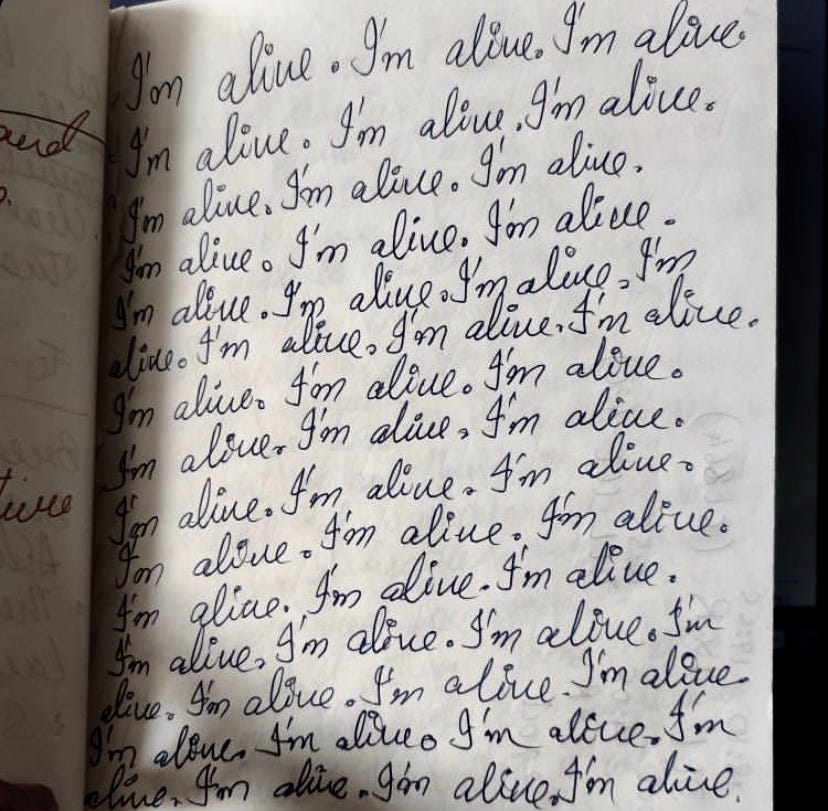 I'm alive. I'm alive. I'm alive.
I'm alive. I'm alive. I'm alive.
I'm alive. I'm alive. I'm alive.
I'm alive. I'm alive. I'm alive.
I'm alive. I'm alive. I'm alive. I'm
alive. I'm alive. I'm alive. I'm alive.
I'm alive. I'm alive. I'm alive.
I'm alive. I'm alive. I'm alive.
I'm alive. I'm alive. I'm alive.
I'm alive. I'm alive. I'm alive.
I'm alive. I'm alive. I'm alive.
I'm alive. I'm alive. I'm alive. I'm
alive. I'm alive. I'm alive. I'm alive.
I'm alive. I'm alive. I'm alive. I'm
alive. I'm alive. I'm alive. I'm alive.